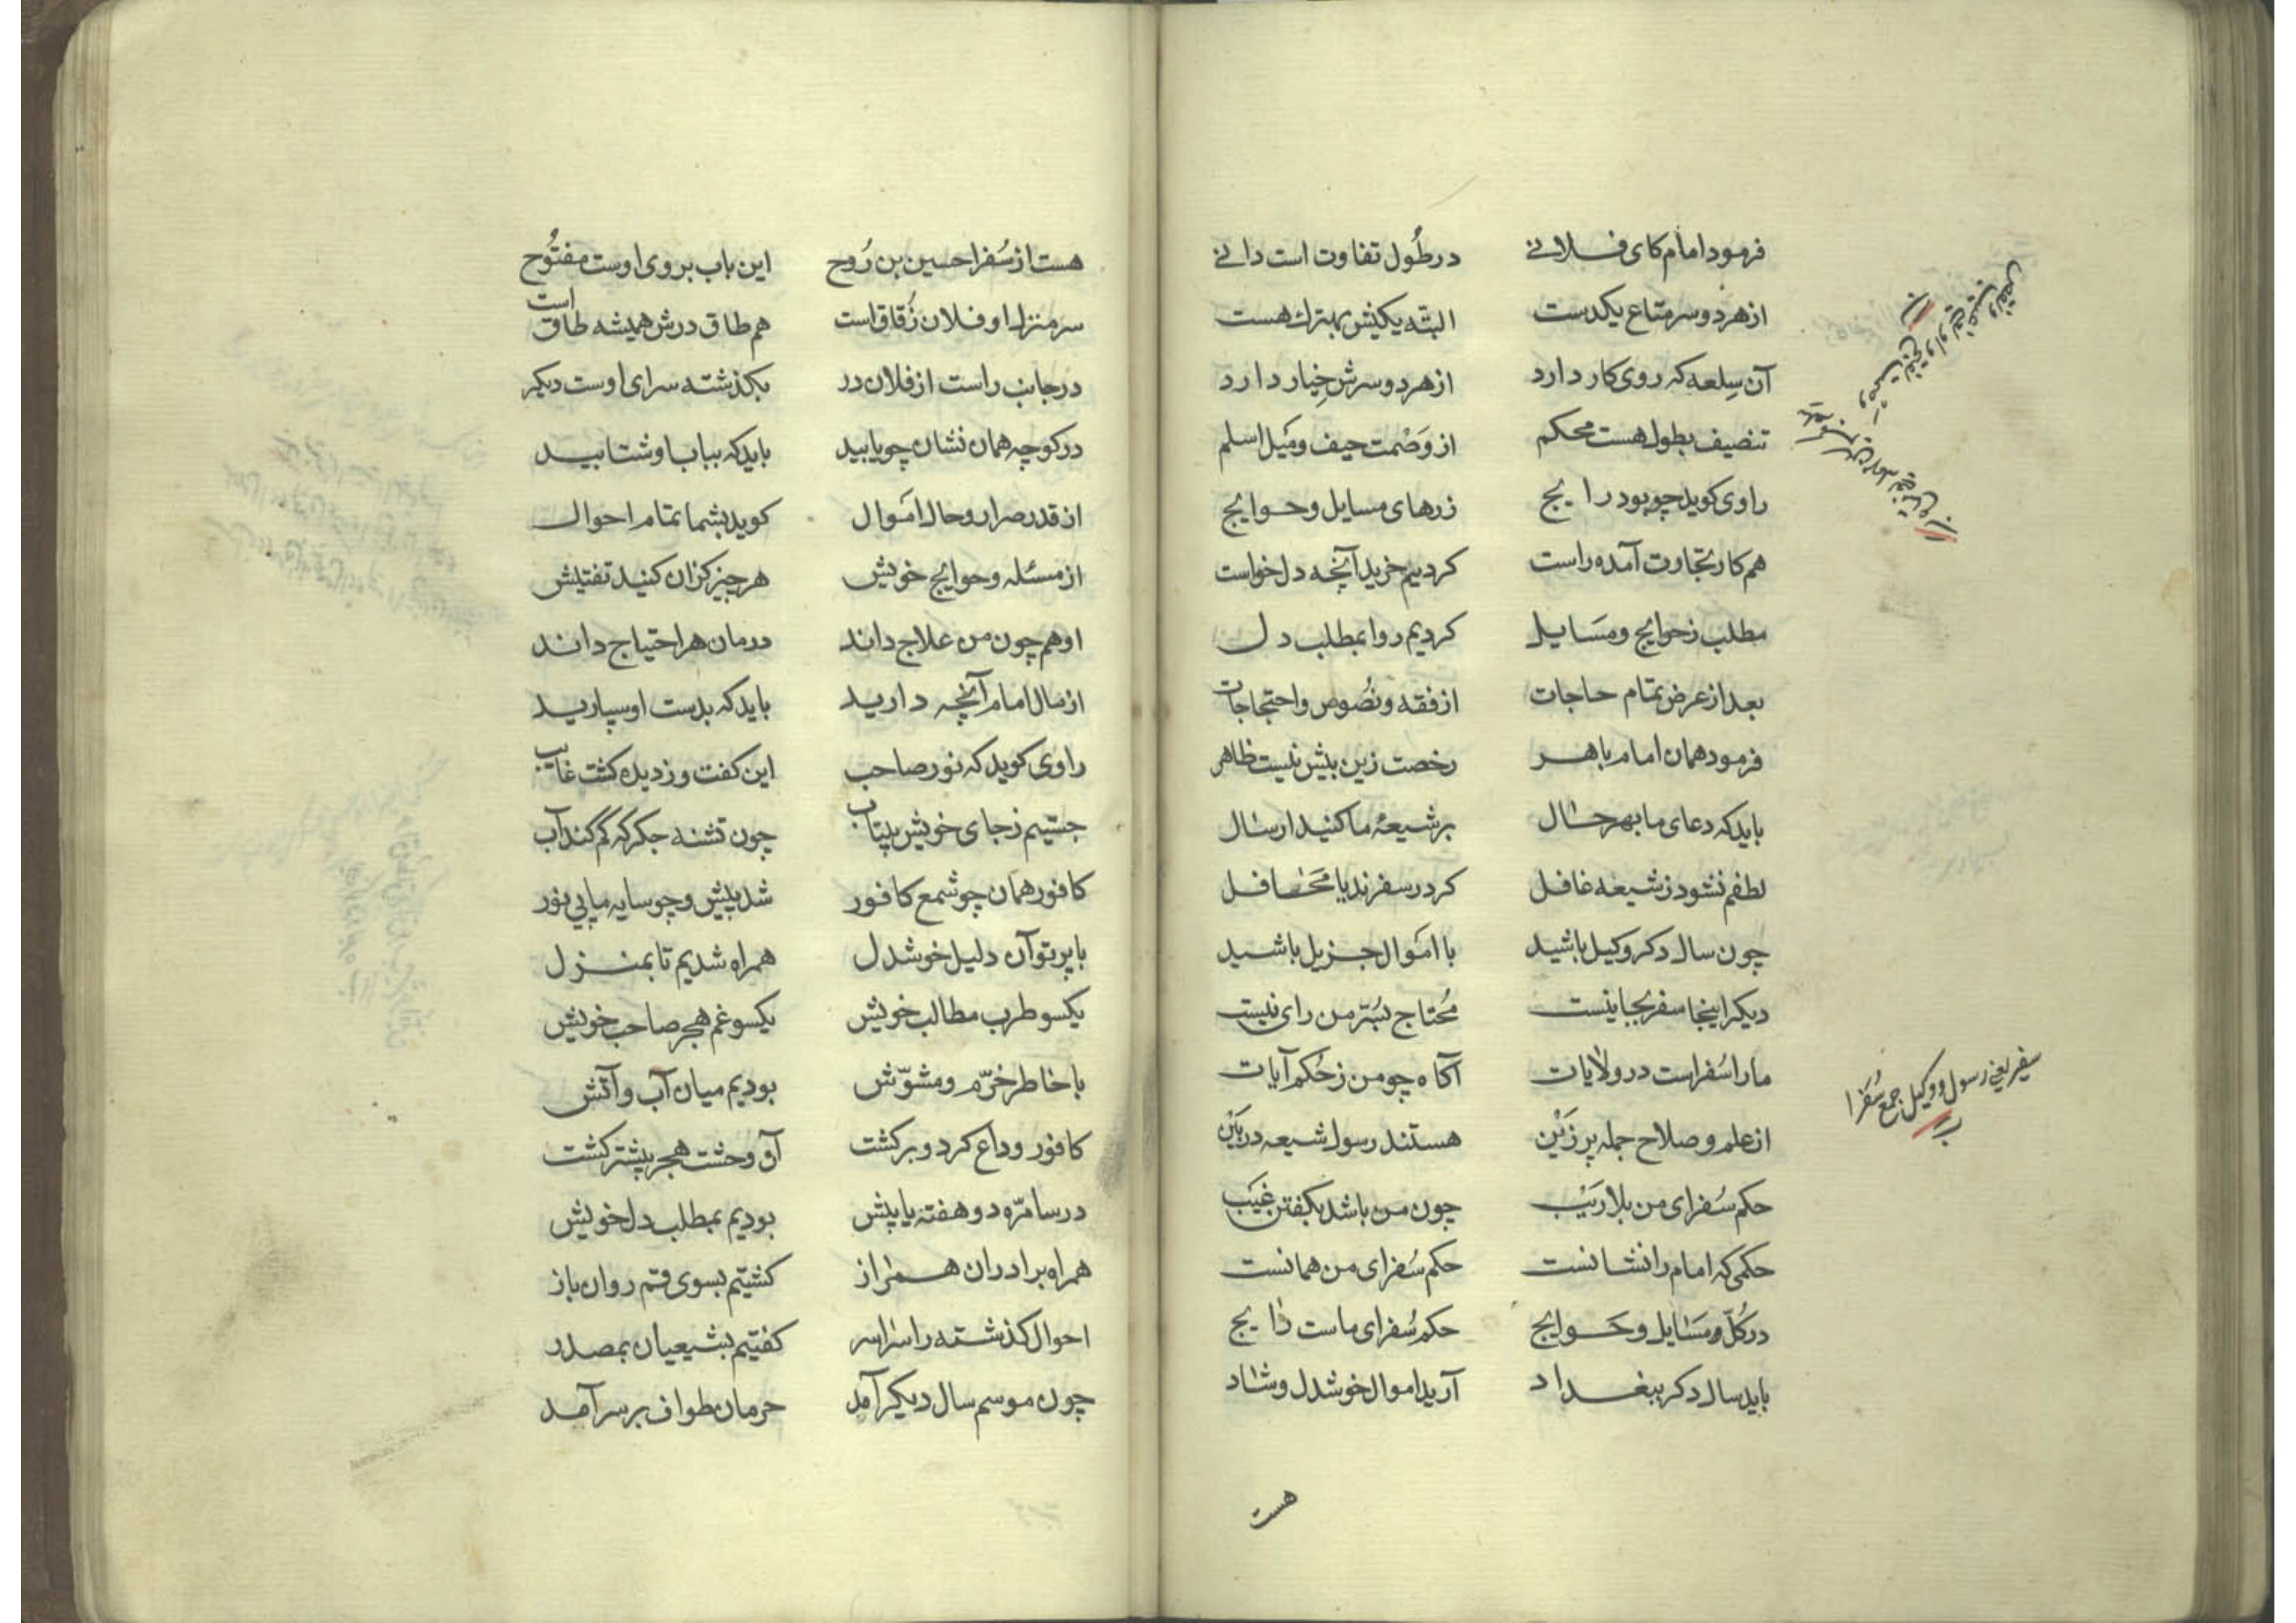 فرمود امام کای فلانے در طُول تفاوت است دانے
از هر دو سر متاع یکدست البته یکیش بهترک هست
آن سِلعه که روی کار دارد از هر دو سرش خِیار دارد
تنصیف بطول هست محکم از وَصْمت حیف و مَیل اسلم
راوی کوید چو بود رایج زرهای مسایل و حوایج
هم کار تجاوت آمده راست کردیم خرید آنچه دل خواست
مطلب ز حوایج و مسَایل کردیم روا بمطلب دل
بعد از عرض تمام حاجات از فقه و نصُوص و احتجاجات
فرمود همان امام باهر رخصت زین بیش نیست ظاهر
باید که دعای ما بهر حال بر شیعهٔ ما کنید ارسال
لطفم نشود ز شیعه غافل کر در سفرند یا مَحَافل
چون سال دکر وکیل باشید با امَوال جزیل باشید
دیکر اینجا سفر بجا نیست مُحتاج بسُرّ من رای نیست
ما را سُفراست در ولایات آکاه چو من ز حُکم آیات
از علم و صلاح جمله پر زَیْن هستند رسول شیعه در بَیْن
حکم سُفرای من بلا رَیْب چون من باشد بکفتن غیَب
حکمی که امام را نشانست حکم سُفرای من همانست
در کُلّ مسَایل و حَوایج حکم سُفرای ماست رایج
باید سال دکر ببغداد آرید اموال خوشدل و شاد
هست
سفیر یعنی رسول و وکیل جمع سُفَرا
هست از سُفرا حسین بن رُوح این باب بروی اوست مفتُوح
سر منزل او فلان زُقاق است هم طاق درش همیشه طاق است
در جانب راست از فلان در بکذشته سرای اوست دیکر
در کوچه همان نشان چو یابید باید که بباب او شتابید
از قدر صرار و حال امَوال کوید بشما تمام احوال
از مسئله و حوایج خویش هر چیز کزان کنید تفتیش
او هم چون من علاج داند درمان هر احتیاج داند
از مال امام آنچه دارید باید که بدست او سپارید
راوی کوید که نور صاحب این کفت و ز دیده کشت غایب
جستیم ز جای خویش بیتاب چون تشنه جکر که کم کند آب
کافور همان چو شمع کافور شد پیش و چو سایه ما پی نور
با پرتو آن دلیل خوشدل همراه شدیم تا بمنزل
یکسو طرب مطالب خویش یکسو غم هجر صاحب خویش
با خاطر خرّم و مشوّش بودیم میان آب و آتش
کافور وداع کرد و برکشت آن وحشت هجر بیشتر کشت
در سامرّه دو هفته یا پیش بودیم بمطلب دل خویش
همراه برادران همراز کشتیم بسوی قم روان باز
احوال کذشته را سراسر کفتیم بشیعیان بمصدر
چون موسم سال دیکر آمد حرمان طواف بر سر آمد